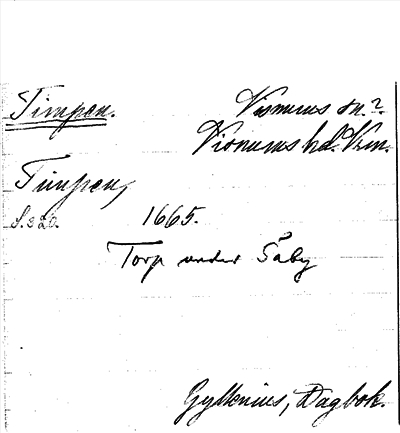 Timpen.
Visnums sn.?
Visnums hd. Vrm.
Timpen,
S. 320.
1665.
Torp under Säby
Gyllenius, Dagbok.